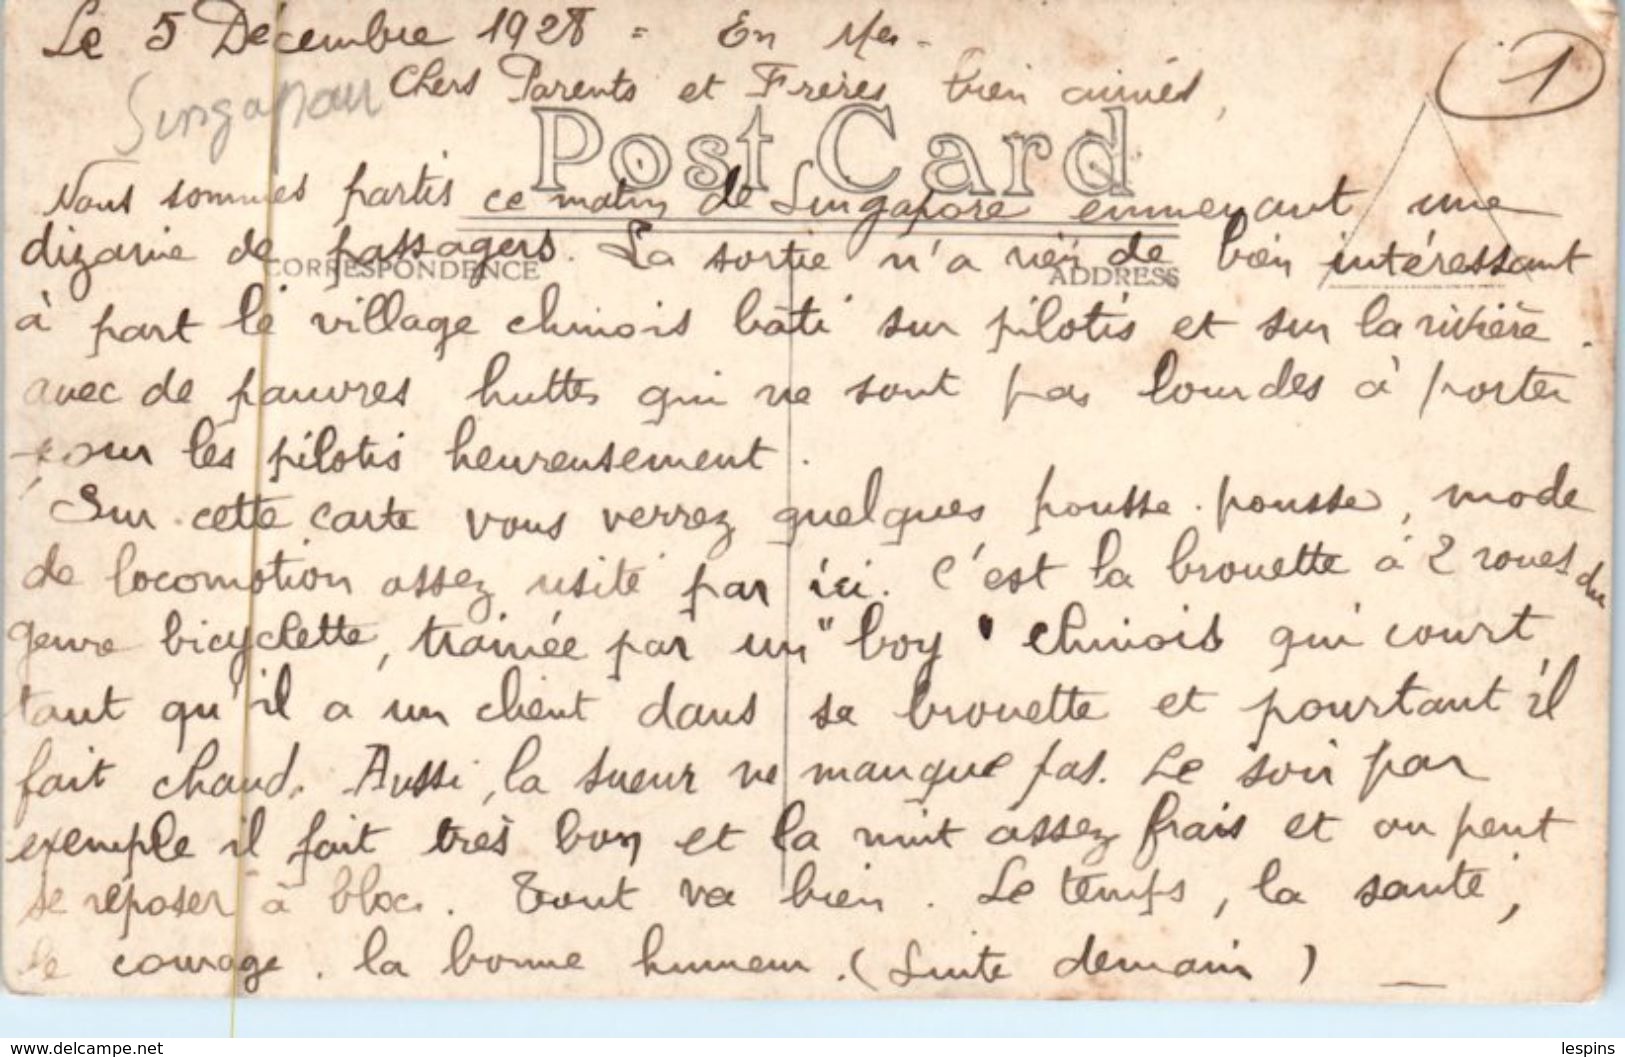 Le 5 Décembre 1928 = En Mer -
1
Singapour
Chers Parents et Frères bien aimés,
Post Card
Nous sommes partis ce matin de Singapore emmenant une
dizaine de passagers. La sortie n'a rien de bien intéressant
CORRESPONDENCE ADDRESS
à part le village chinois bâti sur pilotis et sur la rivière.
avec de pauvres huttes qui ne sont pas lourdes à porter
pour les pilotis heureusement.
Sur cette carte vous verrez quelques pousse-pousse, mode
de locomotion assez usité par ici. C'est la brouette à 2 roues du
genre bicyclette, trainée par un "boy" chinois qui court
tant qu'il a un client dans sa brouette et pourtant il
fait chaud. Aussi, la sueur ne manque pas. Le soir par
exemple il fait très bon et la nuit assez frais et on peut
se réposer à bloc. Tout va bien. Le temps, la santé,
le courage. la bonne humeur. (Suite demain) —
www.delcampe.net
lespins